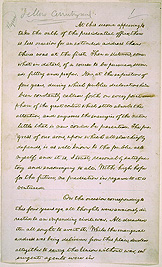 Fellow Countrymen
At this second appearing to
take the oath of the presidential office, there
is less occasion for an extended address than
there was at the first. Then a statement, some
what in detail, of a course to be pursued, seem
ed fitting and proper. Now, at the expiration of
four years, during which public declarations have
been constantly called forth on every point and
phase of the great contest which still absorbs the
attention, and engrosses the energies of the nation,
little that is new could be presented. The pro-
gress of our arms, upon which all else chiefly
depends, is as well known to the public as to
myself; and it is, I trust, reasonably satisfac-
tory and encouraging to all. With high hope
for the future, no prediction in regard to it is
ventured.
On the occasion corresponding to
this four years ago, all thoughts were anxiously di-
rected to an impending civil war. All dreaded
it all sought to avert it. While the inaugeral
address was being delivered from this place, devoted
altogether to saving the Union without war, in
surgent agents were in